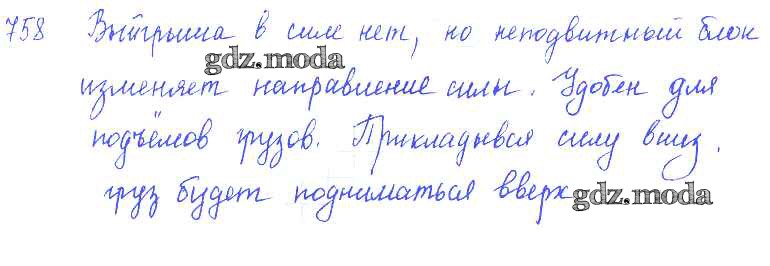 758 Выигрыша в силе нет, но неподвижный блок
gdz.moda
изменяет направление силы. Удобен для
подъёмов грузов. Прикладывая силу вниз,
груз будет подниматься вверх
gdz.moda